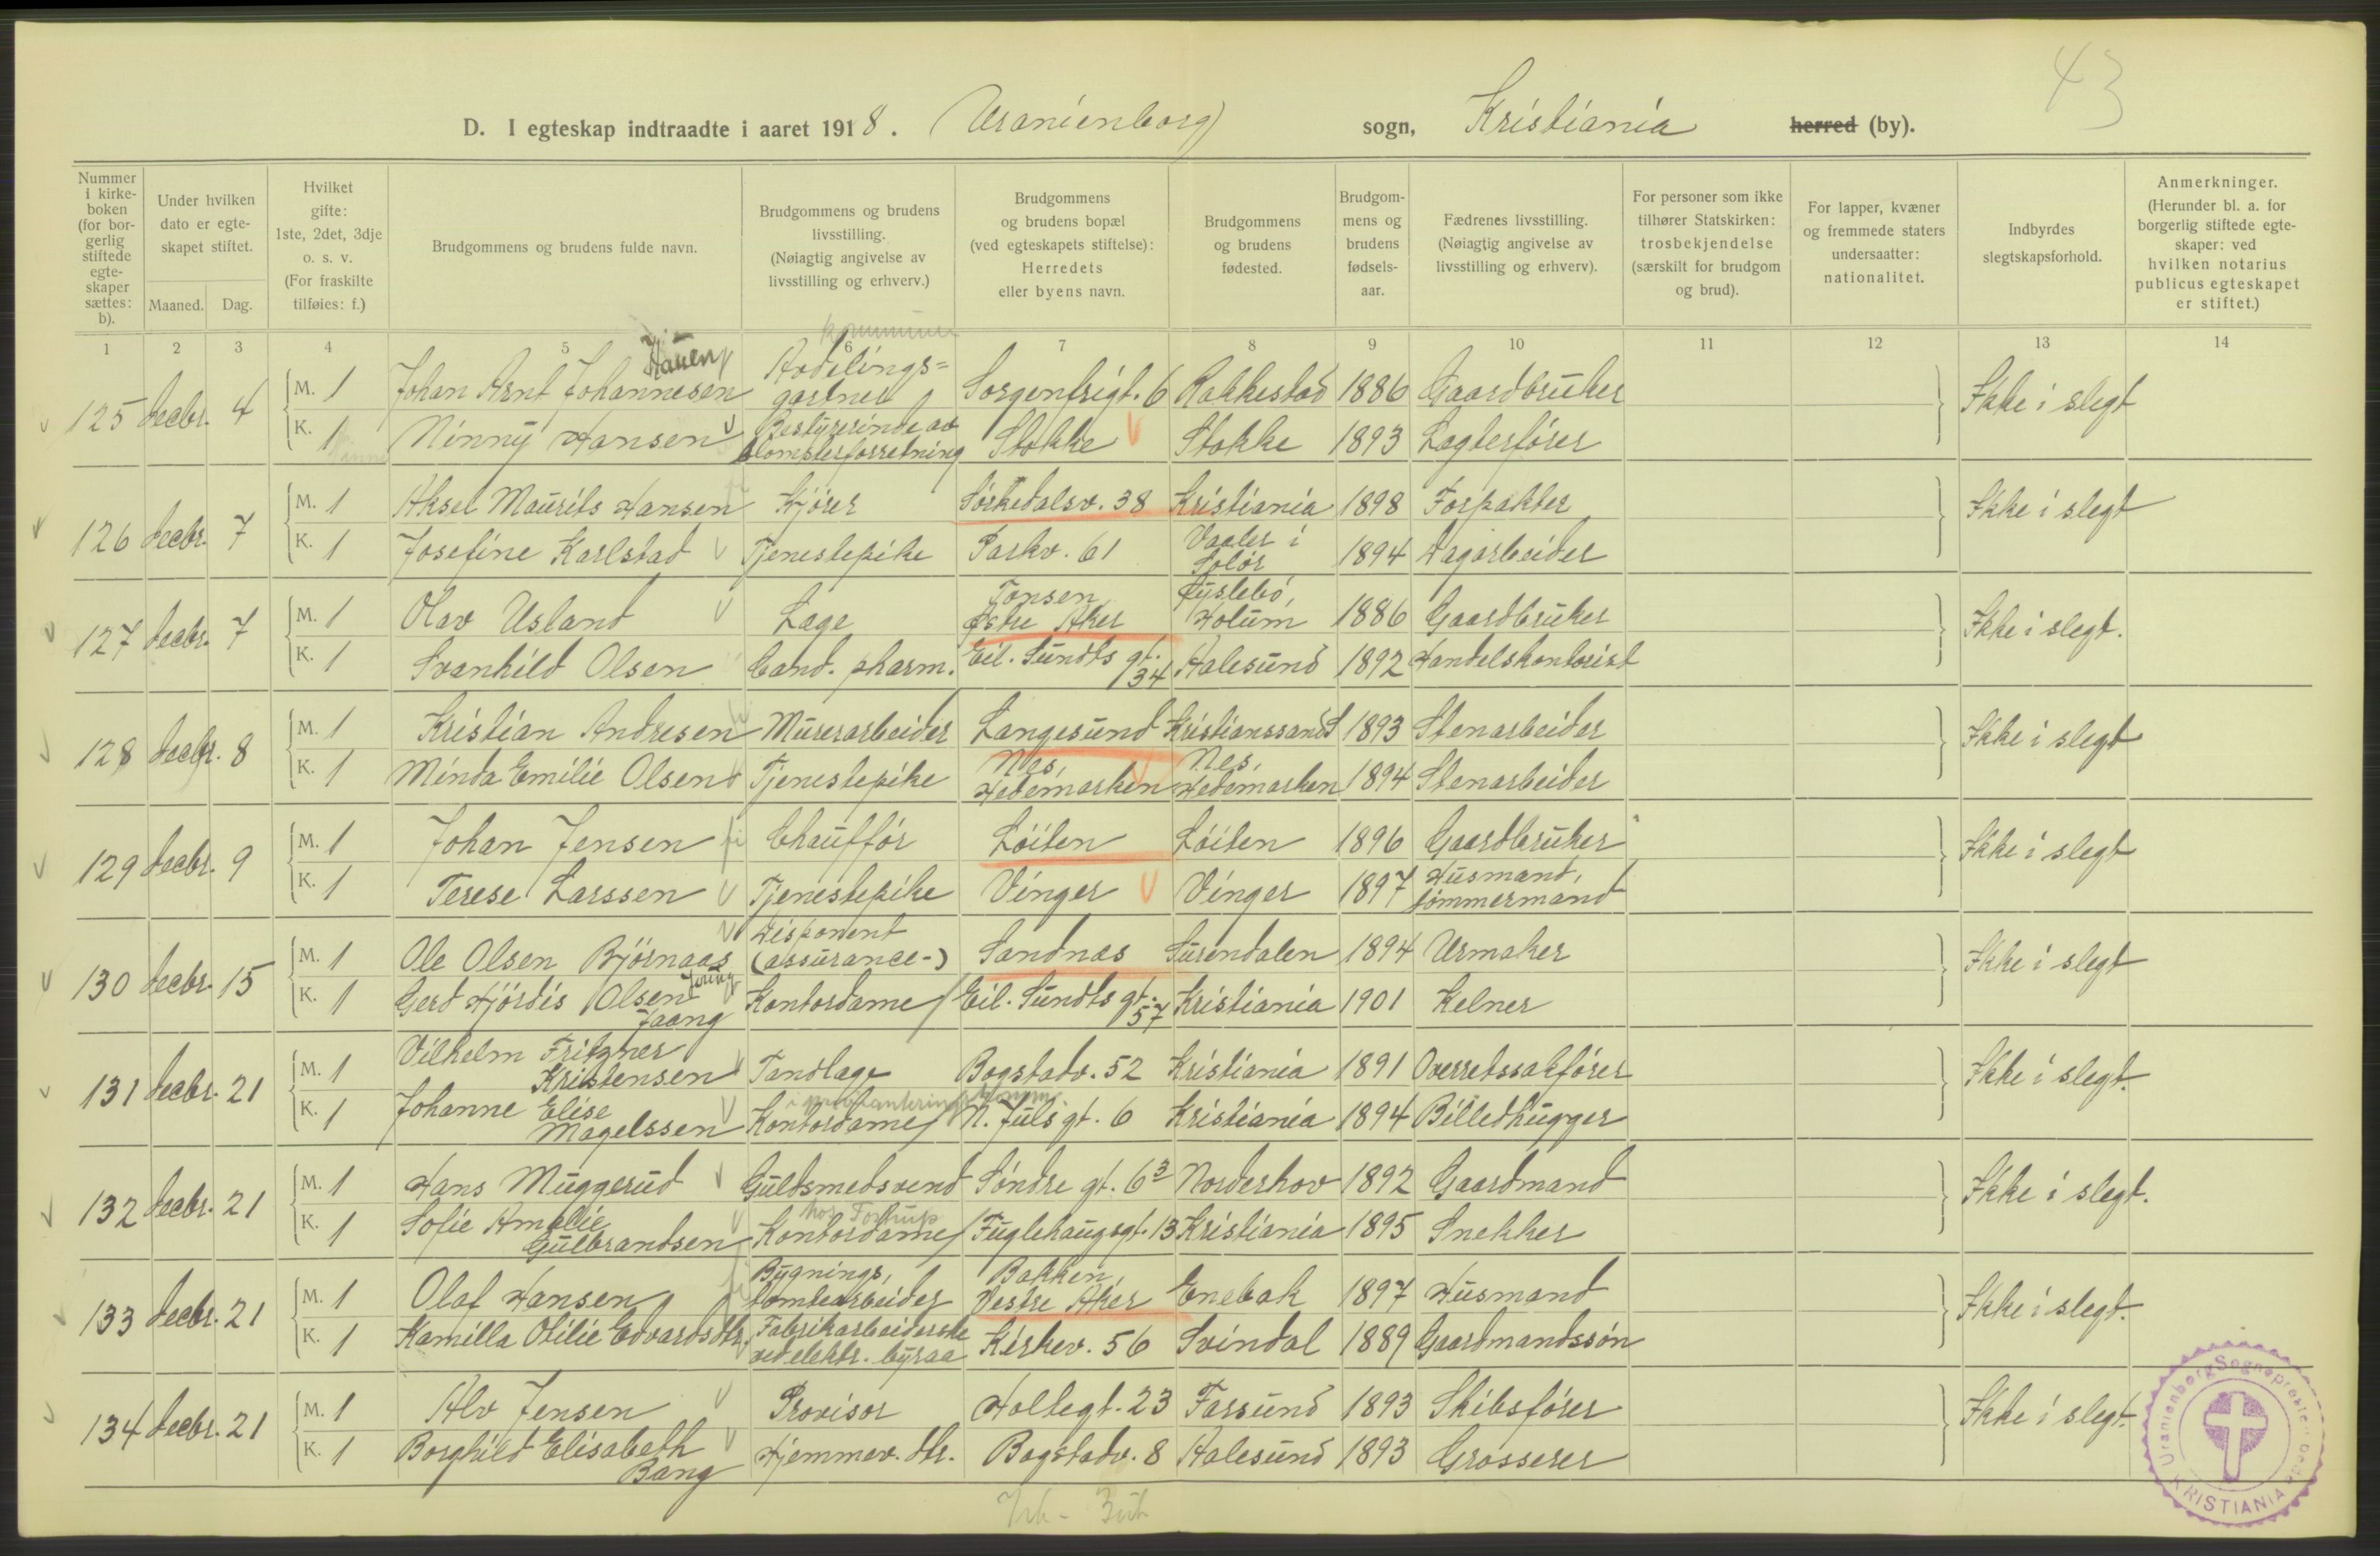 43
D. I egteskap indtraadte i aaret 1918. (Uranienborg) sogn, Kristiania herred (by).
Nummer i kirke-boken (for bor-gerlig stiftede egte-skaper sættes: b).
Under hvilken dato er egte-skapet stiftet.
Maaned. Dag.
Hvilket gifte: 1ste, 2det, 3dje o. s. v. (For fraskilte tilføies: f.)
Brudgommens og brudens fulde navn.
Brudgommens og brudens livsstilling. (Nøiagtig angivelse av livsstilling og erhverv.)
Brudgommens og brudens bopæl (ved egteskapets stiftelse): Herredets eller byens navn.
Brudgommens og brudens fødested.
Brudgom-mens og brudens fødsels-aar.
Fædrenes livsstilling. (Nøiagtig angivelse av livsstilling og erhverv).
For personer som ikke tilhører Statskirken: trosbekjendelse (særskilt for brudgom og brud).
For lapper, kvæner og fremmede staters undersaatter: nationalitet.
Indbyrdes slegtskapsforhold.
Anmerkninger. (Herunder bl. a. for borgerlig stiftede egte-skaper: ved hvilken notarius publicus egteskapet er stiftet.)
1 2 3 4 5 6 7 8 9 10 11 12 13 14
125 decbr. 4 M. 1 Johan Arnt Johannesen Hauen Avdelings= gartner Sorgenfrigt. 6 Rakkestad 1886 Gaardbruker Ikke i slegt
K. 1 Ninny Hansen Bestyrerinde av blomsterforretning Stokke Stokke 1893 Lagterfører
126 decbr. 7 M. 1 Aksel Maurits Hansen Kjører Sørkedalsv. 38 Kristiania 1898 Forpakter Ikke i slegt
K. 1 Josefine Karlstad Tjenestepike Parkv. 61 Vaaler i Solør 1894 Dagarbeider
127 decbr. 7 M. 1 Olav Usland Læge Tonsen Østre Aker Øyslebø, Holum 1886 Gaardbruker Ikke i slegt.
K. 1 Svanhild Olsen Cand. pharm. Eil. Sundts gt. 34 Aalesund 1892 Handelskontorist
128 decbr. 8 M. 1 Kristian Andresen Murerarbeider Langesund Kristianssand S 1893 Stenarbeider Ikke i slegt
K. 1 Minda Emilie Olsen Tjenestepike Nes, Hedemarken Nes, Hedemarken 1894 Stenarbeider
129 decbr. 9 M. 1 Johan Jensen Chauffør Løiten Løiten 1896 Gaardbruker Ikke i slegt
K. 1 Terese Larssen Tjenestepike Vinger Vinger 1897 Husmand, tømmermand
130 decbr. 15 M. 1 Ole Olsen Bjørnaas Disponent (assurance-) Sandnæs Surendalen 1894 Urmaker Ikke i slegt
K. 1 Gerd Hjørdis Olsen Jaang Kontordame Eil. Sundts gt. 57 Kristiania 1901 Kelner
131 decbr. 21 M. 1 Vilhelm Fritzner Kristensen Tandlæge Bogstadv. 52 Kristiania 1891 Overretssakfører Ikke i slegt.
K. 1 Johanne Elise Magelssen Kontordame N. Juls gt. 6 Kristiania 1894 Billedhugger
132 decbr. 21 M. 1 Hans Muggerud Guldsmedsvend Søndre gt. 6³ Norderhov 1892 Gaardmand Ikke i slegt.
K. 1 Sofie Amalie Gulbrandsen Kontordame hos Tostrup Fuglehaugsgt. 13 Kristiania 1895 Snekker
133 decbr. 21 M. 1 Olaf Hansen Bygnings, tomtearbeider Bakken, Vestre Aker Enebak 1897 Husmand Ikke i slegt.
K. 1 Kamilla Otilie Edvardsdtr. Fabrikarbeiderske ved elektr. byraa Kirkev. 56 Svindal 1889 Gaardmandssøn
134 decbr. 21 M. 1 Alv Jensen Provisor Holtegt. 23 Farsund 1893 Skibsfører Ikke i slegt.
K. 1 Borghild Elisabeth Bang Hjemmev. dtr. Bogstadv. 8 Aalesund 1893 Grosserer
Uranienborg Sogneprestembede KRISTIANIA